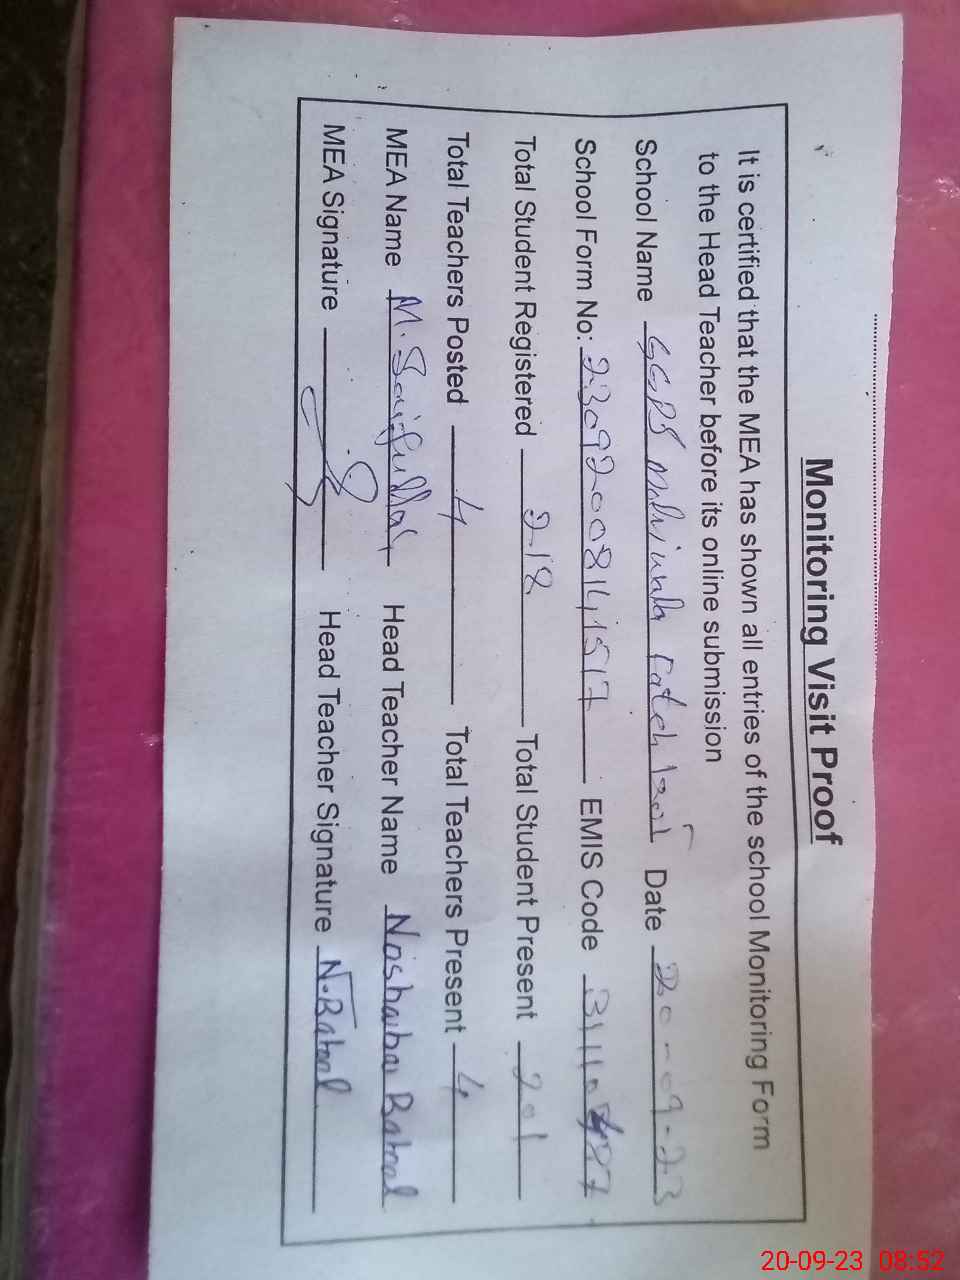 Monitoring Visit Proof
It is certified that the MEA has shown all entries of the school Monitoring Form
to the Head Teacher before its online submission
School Name GGPS Date 20-09-23
School Form No: EMIS Code
Total Student Registered 218 Total Student Present 201
Total Teachers Posted 4 Total Teachers Present 4
MEA Name M. Saifullah Head Teacher Name Noshaba Batool
MEA Signature Head Teacher Signature N.Batool
20-09-23 08:52